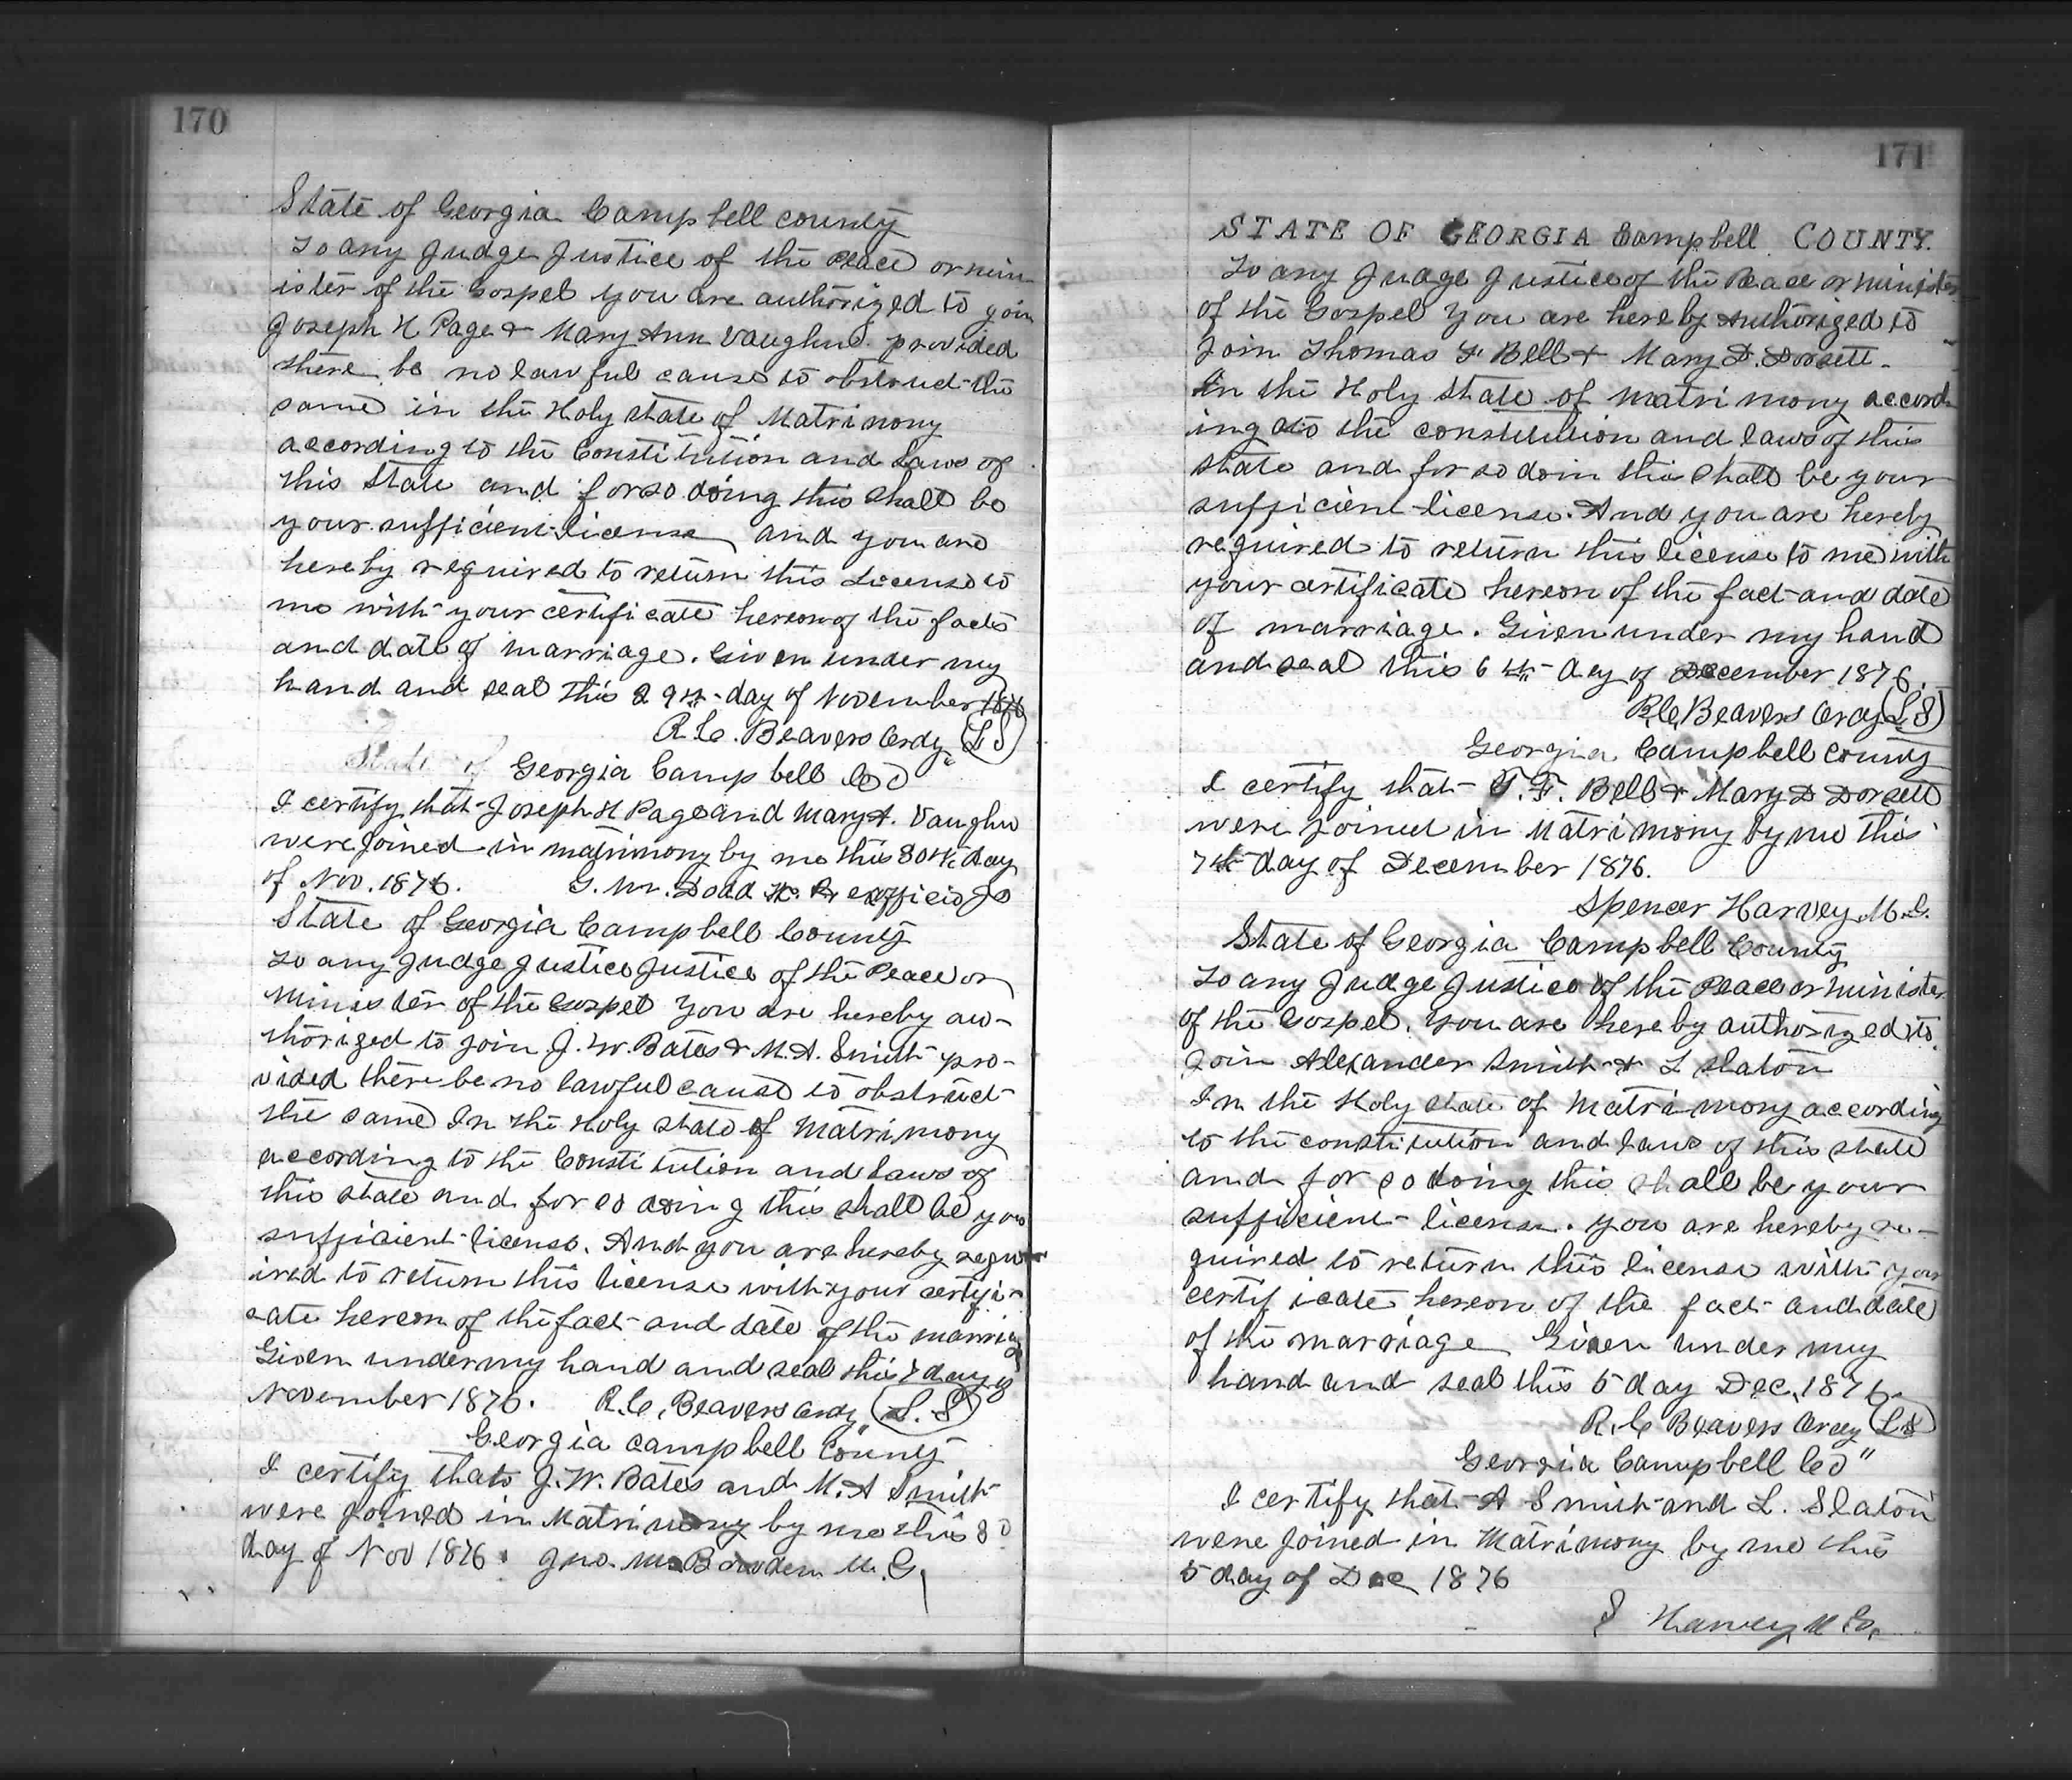 170
State of Georgia Campbell county
To any Judge Justice of the Peace or min
ister of the Gospel you are authorized to join
Joseph H Page & Mary Ann Vaughn provided
there be no lawful cause to obstruct the
same in the Holy state of Matrimony
according to the Constitution and Laws of
this State and for so doing this shall be
your sufficient license and you are
hereby required to return this License to
me with your certificate hereon of the facts
and date of marriage. Given under my
hand and seal this 29th day of November 1876
R. C. Beavers Ordy (LS)
State of Georgia Campbell Co
I certify that Joseph H Page and Mary A. Vaughn
were joined in matrimony by me this 30th day
of Nov. 1876. Dodd exofficio
State of Georgia Campbell County
To any Judge Justice Justice of the Peace or
Minister of the Gospel You are hereby au-
thorized to join J. W. Bates & M. A. Smith pro-
vided there be no lawful cause to obstruct
the same In the Holy state of Matrimony
according to the Constitution and Laws of
this state and for so doing this shall be your
sufficient license. And you are hereby requ
ired to return this license with your certifi-
cate hereon of the fact and date of the marriage
Given under my hand and seal this 7 day of
November 1876. R. C. Beavers Ordy (L.S)
Georgia Campbell County
I certify that J. W. Bates and M. A Smith
were joined in Matrimony by me this 8
day of Nov 1876. Jno. M. Bowden M. G.
171
STATE OF GEORGIA Campbell COUNTY.
To any Judge Justice of the Peace or minister
of the Gospel You are hereby Authorized to
Join Thomas F. Bell & Mary D. Dorsett.
In the Holy State of matrimony accord
ing to the constitution and laws of this
state and for so doin this shall be your
sufficient license. And you are hereby
required to return this license to me with
your certificate hereon of the fact and date
of marriage. Given under my hand
and seal this 6th day of December 1876.
R. C. Beavers Ordy (LS)
Georgia Campbell County
I certify that T. F. Bell & Mary D Dorsett
were joined in Matrimony by me this
7th day of December 1876.
Spencer Harvey M. G.
State of Georgia Campbell County
To any Judge Justice of the Peace or minister
of the Gospel. You are hereby authorized to
Join Alexander Smith & L Slaton
In the Holy state of Matrimony according
to the constitution and laws of this state
and for so doing this shall be your
sufficient license. you are hereby re-
quired to return this license with your
certificate hereon of the fact and date
of the marriage Given under my
hand and seal this 5 day Dec. 1876.
R. C Beavers Ordy (LS)
Georgia Campbell Co"
I certify that A Smith and L. Slaton
were joined in Matrimony by me this
5 day of Dec 1876
S Harvey M G.